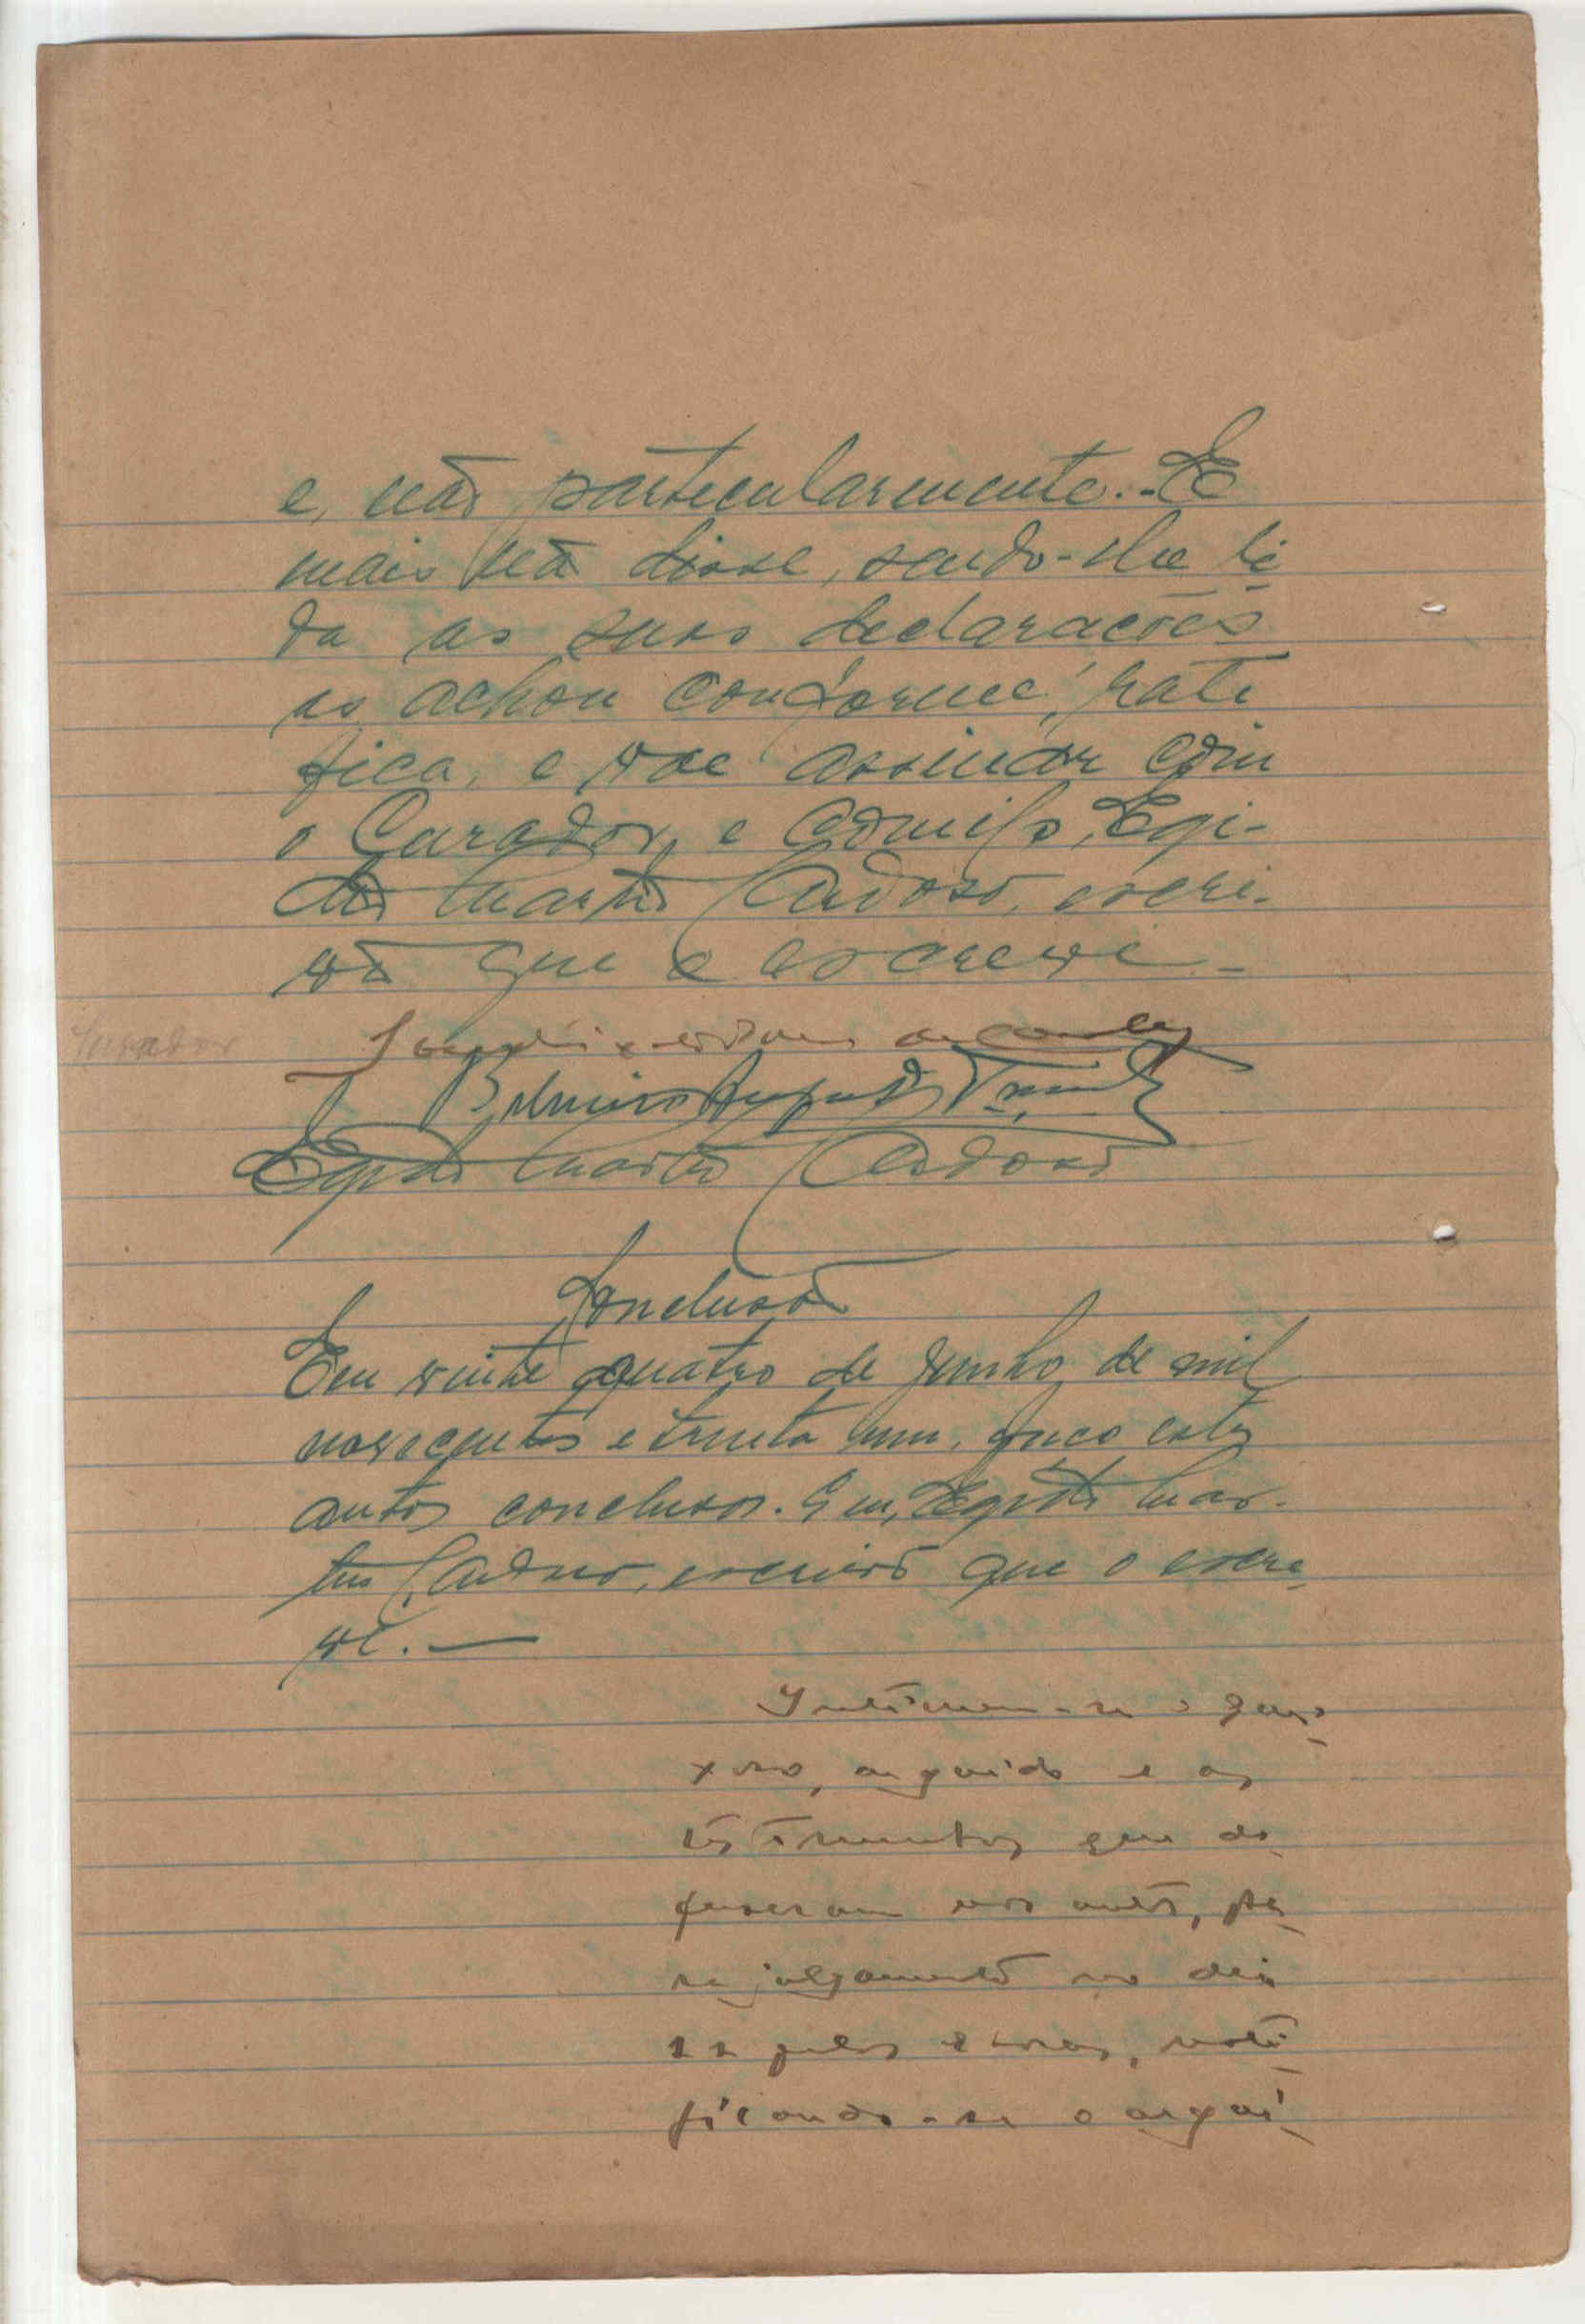 e, não particularmente. - E
mais não disse, sendo-lhe li-
da as suas declarações
as achou conforme, rati
fica, e vae assinar com
o Curador, e comigo, Egi-
dio Martins Cardoso, escri-
vão que o escrevi -
Curador
Belmiro Augusto
Egidio Martins Cardoso
Conclusão
Em vinte quatro de Junho de mil
novecentos e trinta um, faço estes
autos conclusos. Eu, Egidio Mar-
tins Cardoso, escrivão que o escre-
vi. —
Intimem-se o quei-
xoso, arguido e as
testemunhas que de-
puseram nos autos, pa-
ra julgamento no dia
pelas horas, noti-
ficando-se o argui-